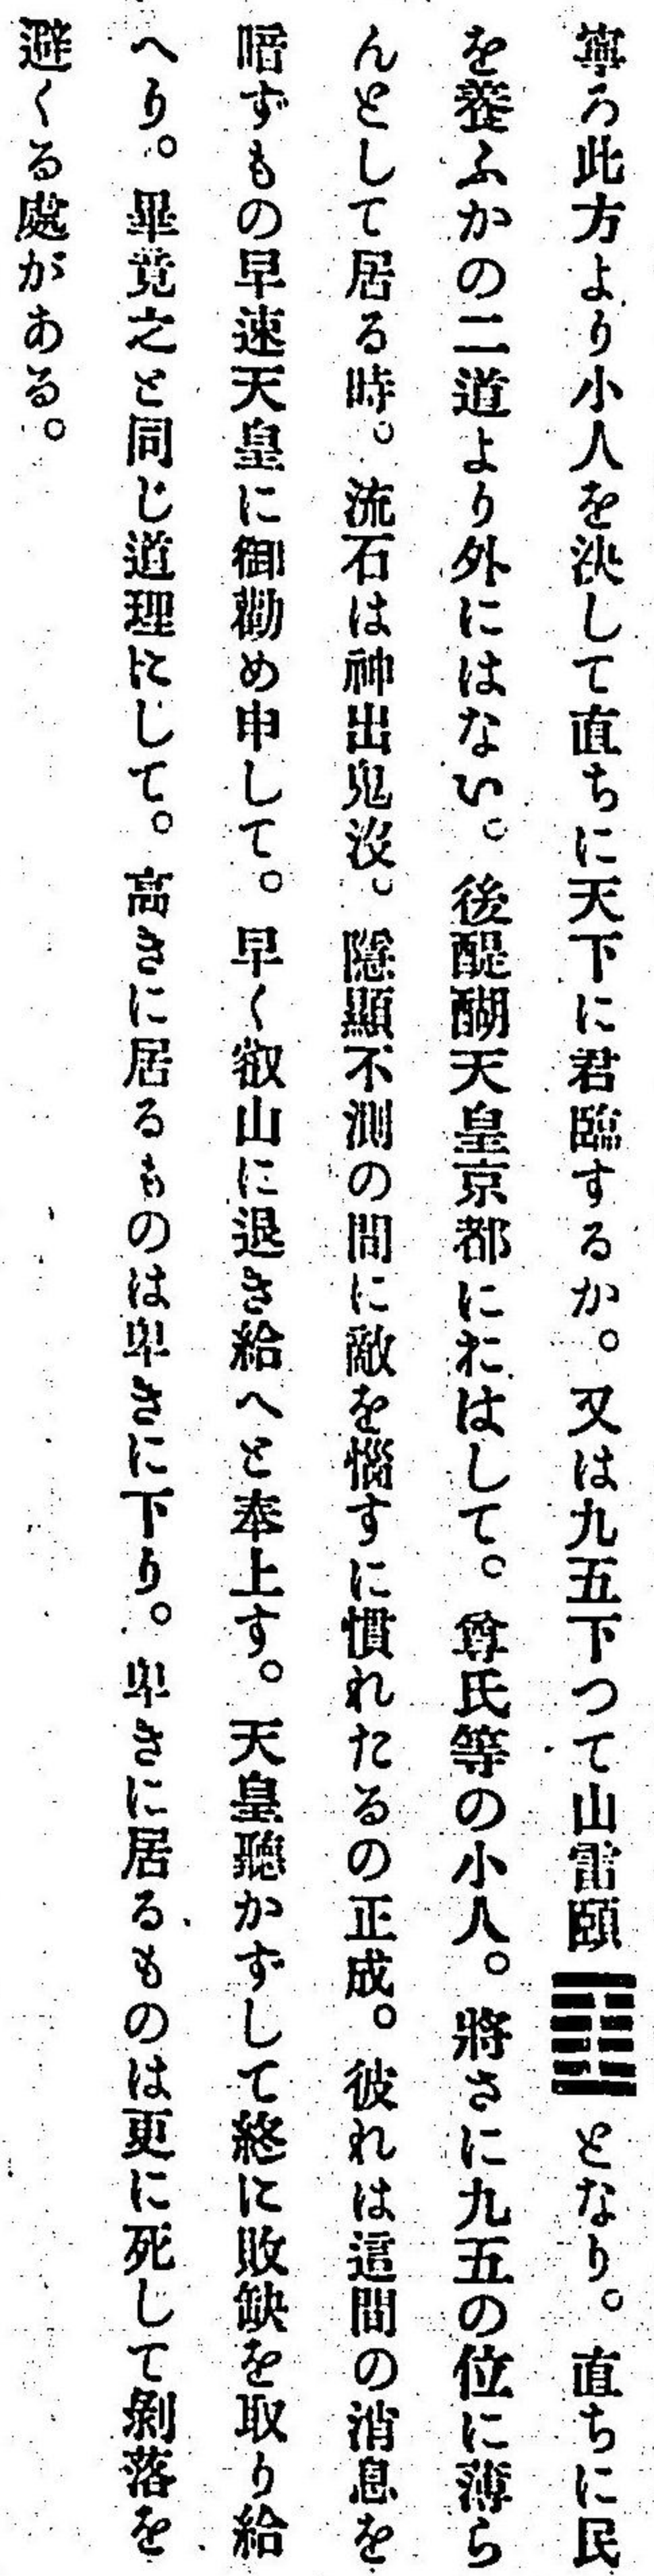 寧ろ此方より小人を決して直ちに天下に君臨するか。又は九五下つて山雷頤䷚となり。直ちに民
を養ふかの二道より外にはない。後醍醐天皇京都におはして。尊氏等の小人。將さに九五の位に薄ら
んとして居る時。流石は神出鬼沒。隱顯不測の間に敵を惱すに慣れたるの正成。彼れは這間の消息を
暗ずもの早速天皇に御勸め申して。早く叡山に退き給へと奉上す。天皇聽かずして終に敗缺を取り給
へり。畢竟之と同じ道理にして。高きに居るものは卑きに下り。卑きに居るものは更に死して剝落を
避くる處がある。